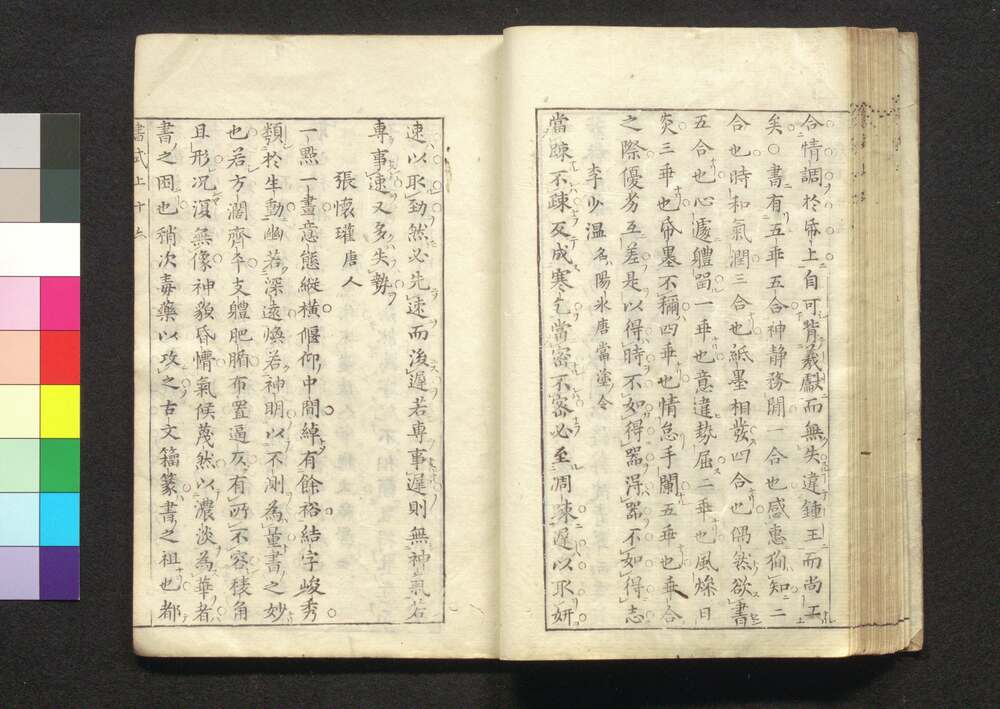 合情調於帋上自可背羲獻而無失違鍾王而尚工
矣○書有五乖五合神静務閑一合也感惠徇知二
合也時和氣潤三合也紙墨相發四合也偶然欲書
五合也心遽軆留一乖也意違勢屈二乖也風燥日
炎三乖也帋墨不稱四乖也情怠手闌五乖也乖合
之際優劣互差是以得時不如得器得器不如得志
李少温名陽氷唐當塗令
當踈不疎反成寒乞當密不密必至凋踈遲以取妍
速以取勁然必先速而後遲若専事遲則無神氣若
専事速又多失勢
張懷瓘唐人
一點一畫意態縱横偃仰中間綽有餘裕結字峻秀
類於生動幽若深遠煥若神明以不測為量書之妙
也若方濶齊平支軆肥腯布置逼仄有所不容稜角
且形况溟無像神貌昏懵氣候蔑然以濃淡為華者
書之困也稍次毒藥以攻之古文籀篆書之祖也都
書式上十